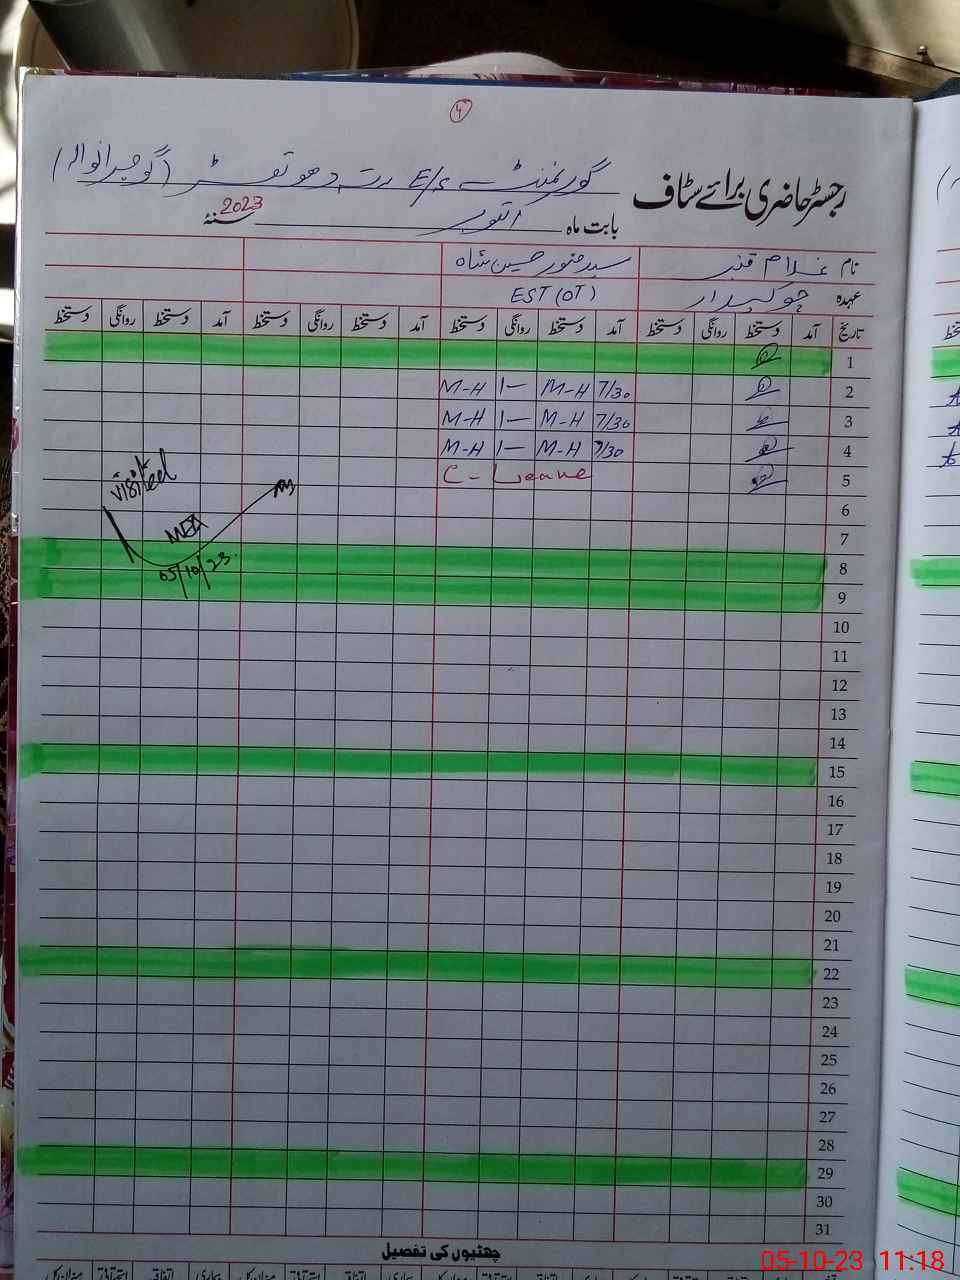 ۴
رجسٹر حاضری برائے سٹاف گورنمنٹ E/S (گوجرانوالہ)
بابت ماہ اکتوبر سنۂ 2023
نام غلام قنبر سید منور حسین شاہ
عہدہ چوکیدار EST (OT)
تاریخ آمد دستخط روانگی دستخط آمد دستخط روانگی دستخط آمد دستخط روانگی دستخط آمد دستخط روانگی دستخط
1
2 7/30 M-H 1— M-H
3 7/30 M-H 1— M-H
4 7/30 M-H 1— M-H
5 C- Leave
6
Visited
7
MEA
8
05/10/23.
9
10
11
12
13
14
15
16
17
18
19
20
21
22
23
24
25
26
27
28
29
30
31
چھٹیوں کی تفصیل
05-10-23 11:18